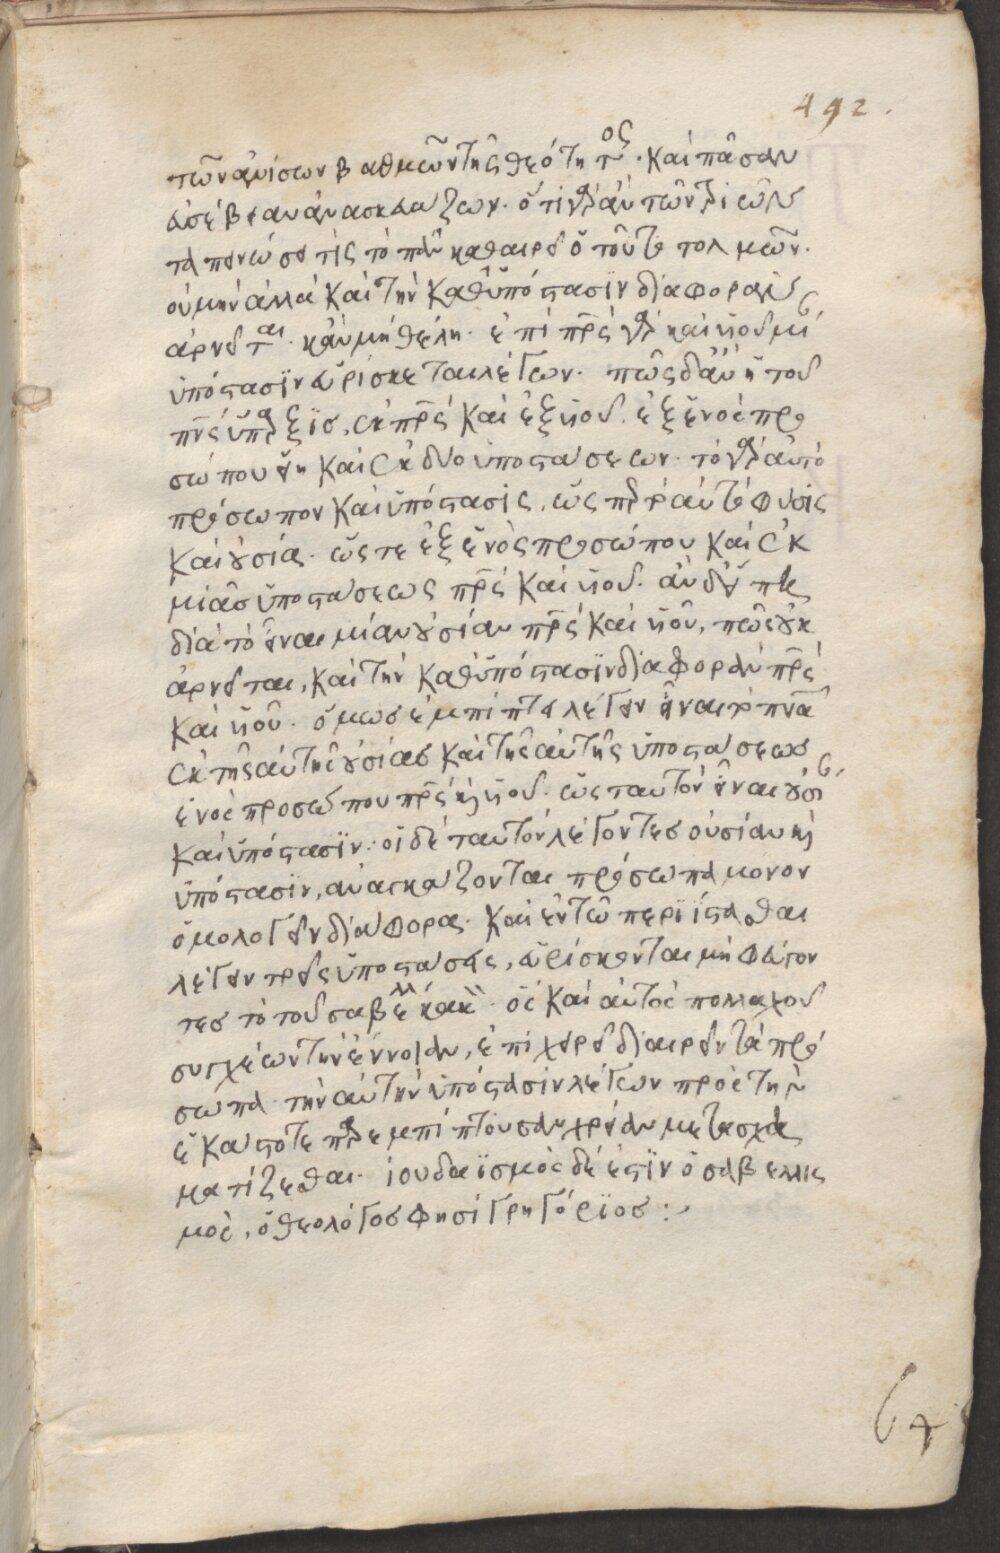 492.
τῶν ἀνίσων βαθμῶν τῆς θεότητος. καὶ πᾶσαν
ἀσέβειαν ἀνασκευάζων. ὅτι γὰρ ἂν τῶν τριῶν
ταπεινώσει τίς τὸ πᾶν καθαιρεῖ ὁ τοῦτο τολμῶν.
οὐ μὴν ἀλλὰ καὶ τὴν καθ' ὑπόστασιν διαφορὰν
ἀρνεῖται. κἂν μὴ θέλη. ἐπὶ πρς γὰρ καὶ υἱοῦ μίαν
ὑπόστασιν εὑρίσκεται λέγων. πῶς δ' ἂν ἡ τοῦ
πνς ὕπαρξις, ἐκ πρς καὶ ἐξ υἱοῦ. ἐξ ἑνὸς προ
σώπου εἴη καὶ ἐκ δύο ὑποστάσεων. τὸ γὰρ αὐτὸ
πρόσωπον καὶ ὑπόστασις, ὡς τὸ αὐτὸ φύσις
καὶ οὐσία. ὥστε ἐξ ἑνὸς προσώπου καὶ ἐκ
μιᾶς ὑποστάσεως πρς καὶ υἱοῦ.
διὰ τὸ εἶναι μίαν οὐσίαν πρς καὶ υἱοῦ, πῶς οὐκ
ἀρνεῖται, καὶ τὴν καθ' ὑπόστασιν διαφορὰν πρς
καὶ υἱοῦ. ὅμως ἐμπίπτει λέγειν εἶναι τὸ πνα
ἐκ τῆς αὐτῆς οὐσίας καὶ τῆς αὐτῆς ὑποστάσεως
ἑνὸς προσώπου πρς κ(αὶ) υἱοῦ. ὡς ταυτὸν εἶναι οὐσίαν
καὶ ὑπόστασιν. οἱ δὲ ταυτὸν λέγοντες οὐσίαν κ(αὶ)
ὑπόστασιν, ἀναγκάζονται πρόσωπα μόνον
ὁμολογεῖν διάφορα. καὶ ἐν τῷ περιίστασθαι
λέγειν τρεῖς ὑποστάσεις, εὑρίσκονται μὴ φεύγον
τες τὸ τοῦ σαβελλ κακ. ὃς καὶ αὐτὸς πολλαχοῦ
συγχέων τὴν ἔννοιαν, ἐπιχειρεῖ διαιρεῖν τὰ πρό
σωπα. τὴν αὐτὴν ὑπόστασιν λέγων πρὸς τὴν
ἑκάστοτε παρεμπίπτουσαν χρείαν μετασχη
ματίζεσθαι. ἰουδαϊσμὸς δέ ἐστιν ὁ σαβελλισ
μὸς, ὁ θεολόγος φησὶ γρηγόριος :